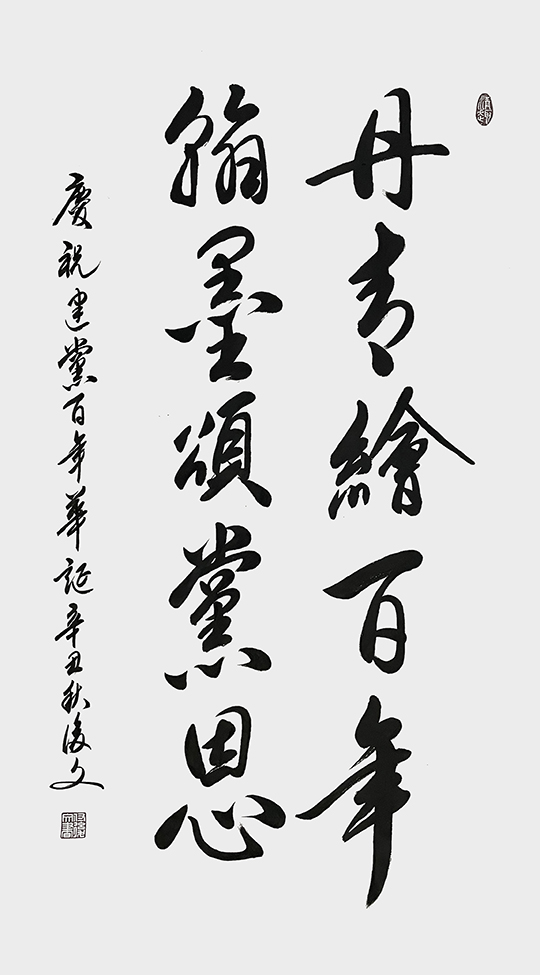 丹青繪百年
翰墨頌黨恩
慶祝建黨百年華誕辛丑秋